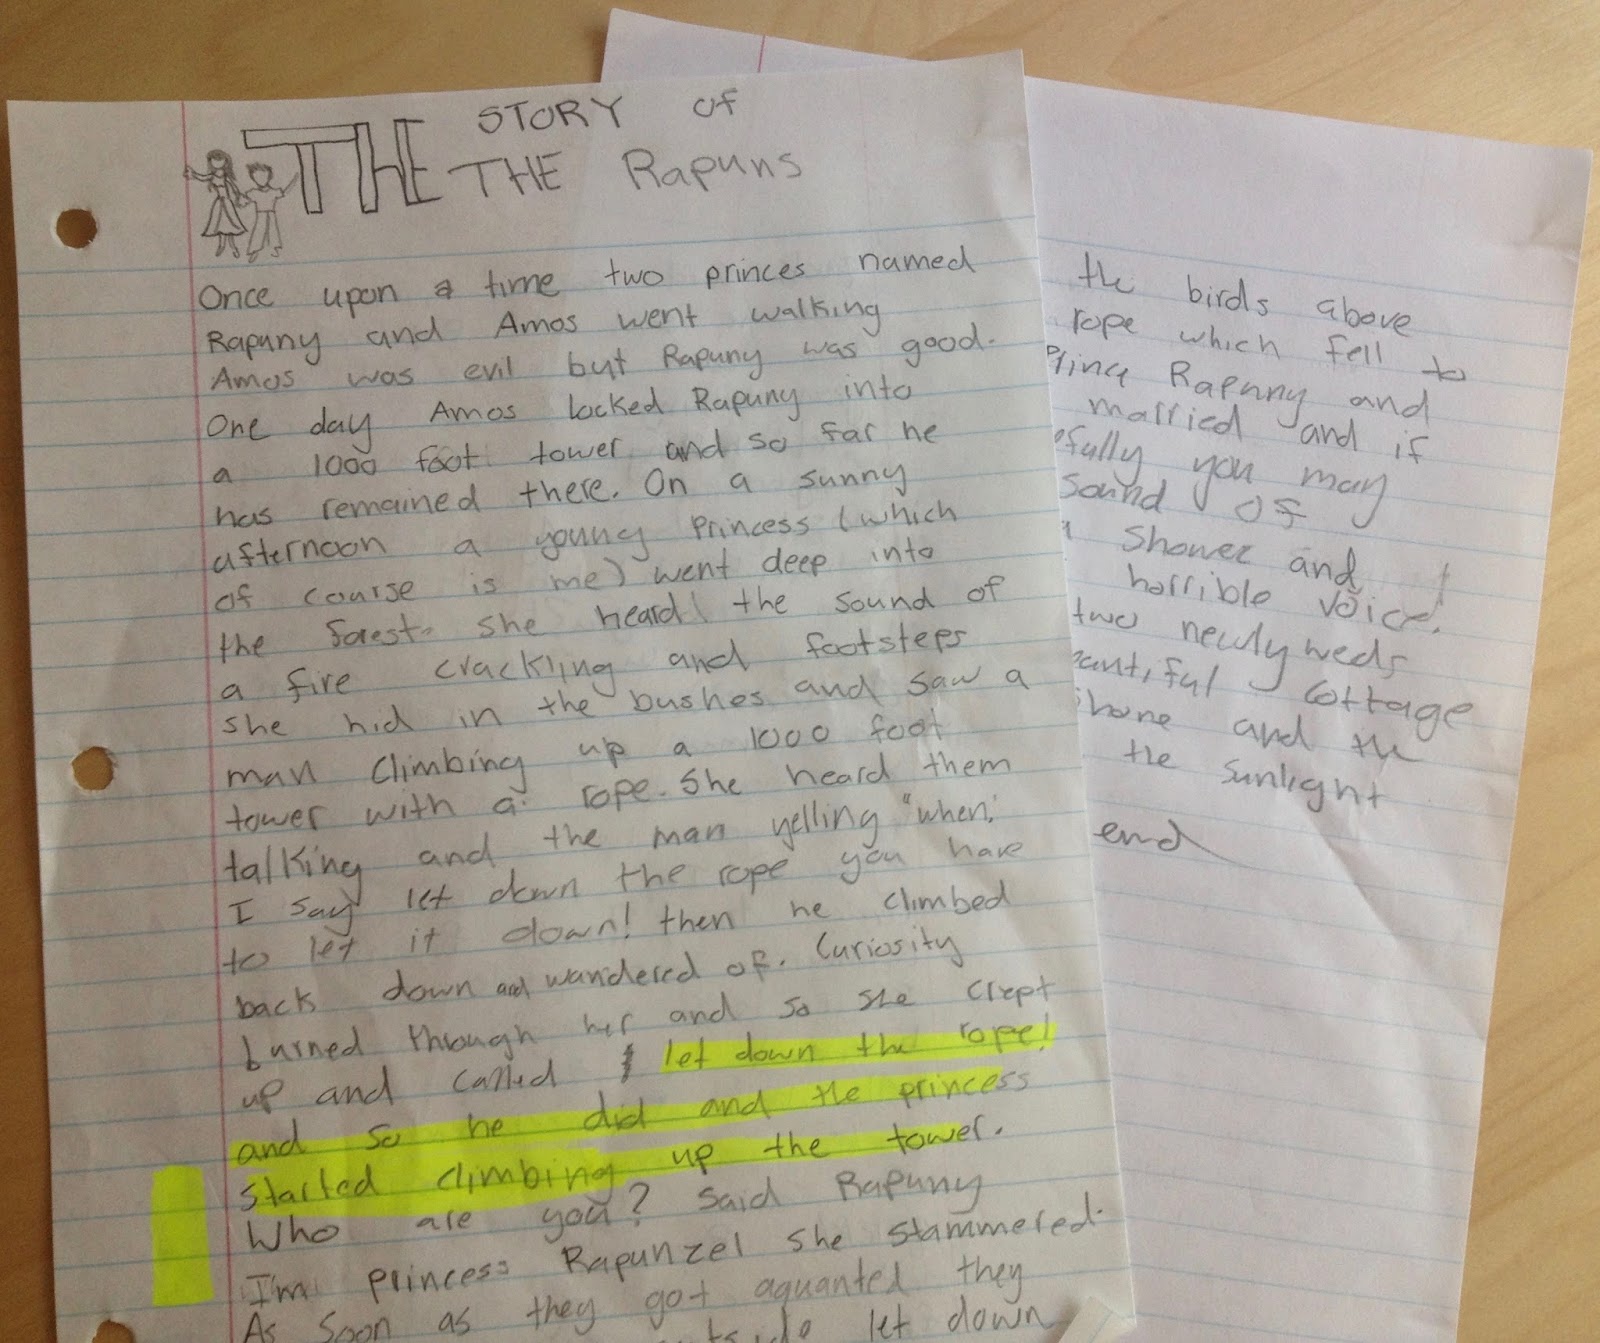 THE STORY OF
THE Rapuns
Once upon a time two princes named
Rapuny and Amos went walking
Amos was evil but Rapuny was good.
One day Amos locked Rapuny into
a 1000 foot tower and so far he
has remained there. On a sunny
afternoon a young Princess (which
of course is me) went deep into
the forest she heard the sound of
a fire crackling and footsteps
she hid in the bushes and saw a
man climbing up a 1000 foot
tower with a rope. She heard them
talking and the man yelling "when
I say let down the rope you have
to let it down! then he climbed
back down and wandered of. Curiosity
burned through her and so she crept
up and called let down the rope!
and so he did and the princess
started climbing up the tower.
Who are you? said Rapuny
I'm princess Rapunzel she stammered.
As soon as they got aquanted they
let down
the birds above
rope which fell to
Prince Rapuny and
married and if
you may
sound of
shower and
horrible voice.
two newlyweds
cottage
and the
the sunlight
end